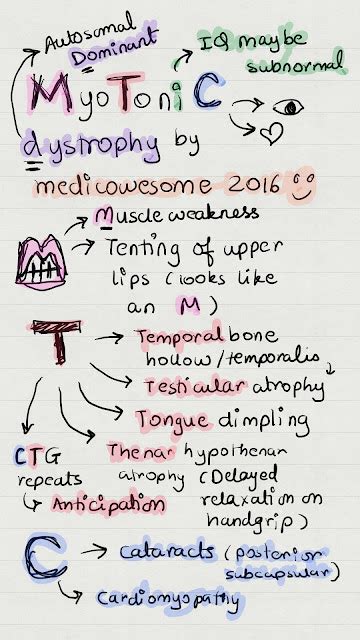 Autosomal
Dominant
IQ maybe
subnormal
MyoToniC
dystrophy by
medicowesome 2016
Muscle weakness
Tenting of upper
lips (looks like
an M)
T
Temporal bone
hollow/temporalis
Testicular atrophy
Tongue dimpling
CTG
repeats
Anticipation
Thenar hypothenar
atrophy (Delayed
relaxation on
handgrip)
C
Cataracts (posterior
subcapsular)
Cardiomyopathy